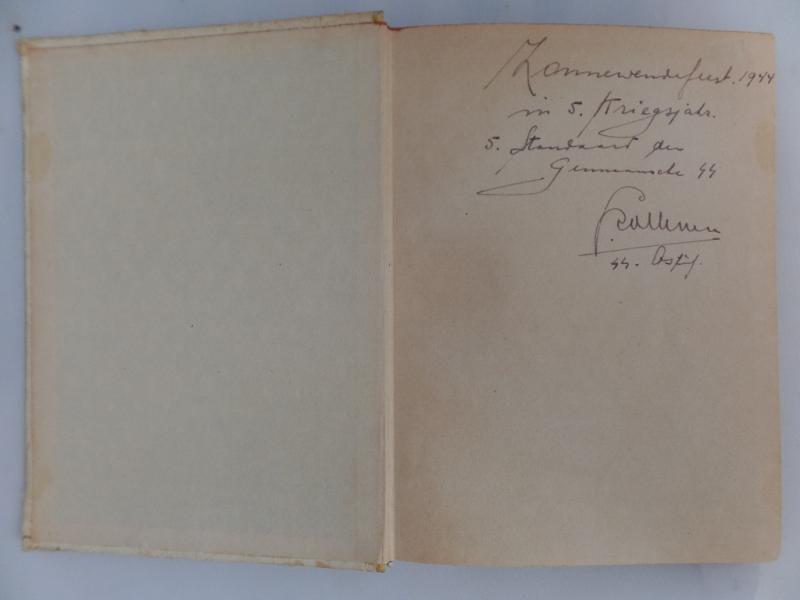 Zonnewendefeest. 1944
in 5. Kriegsjahr.
5. Standaard der
Germaansche SS
SS. Ostuf.